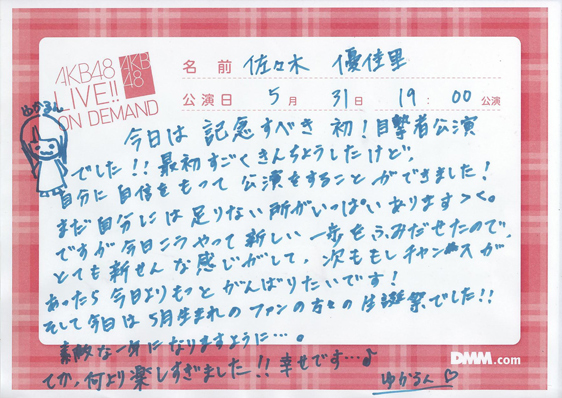 AKB48
LIVE!!
ON DEMAND
AKB
48
名前 佐々木 優佳里
公演日 5月 31日 19:00公演
ゆかるん
今日は 記念すべき 初！目撃者公演
でした！！最初すごくきんちょうしたけど、
自分に自信をもって 公演をすることができました！
まだ自分には足りない所がいっぱいあります＞＜。
ですが今日こうやって新しい一歩をふみだせたので、
とても新せんな感じがして、次ももしチャンスが
あったら今日よりもっとがんばりたいです！
そして今日は5月生まれのファンの方々の生誕祭でした！！
素敵な一年になりますように…。
てか、何より楽しすぎました！！幸せです…♪
ゆかるん♡
DMM.com